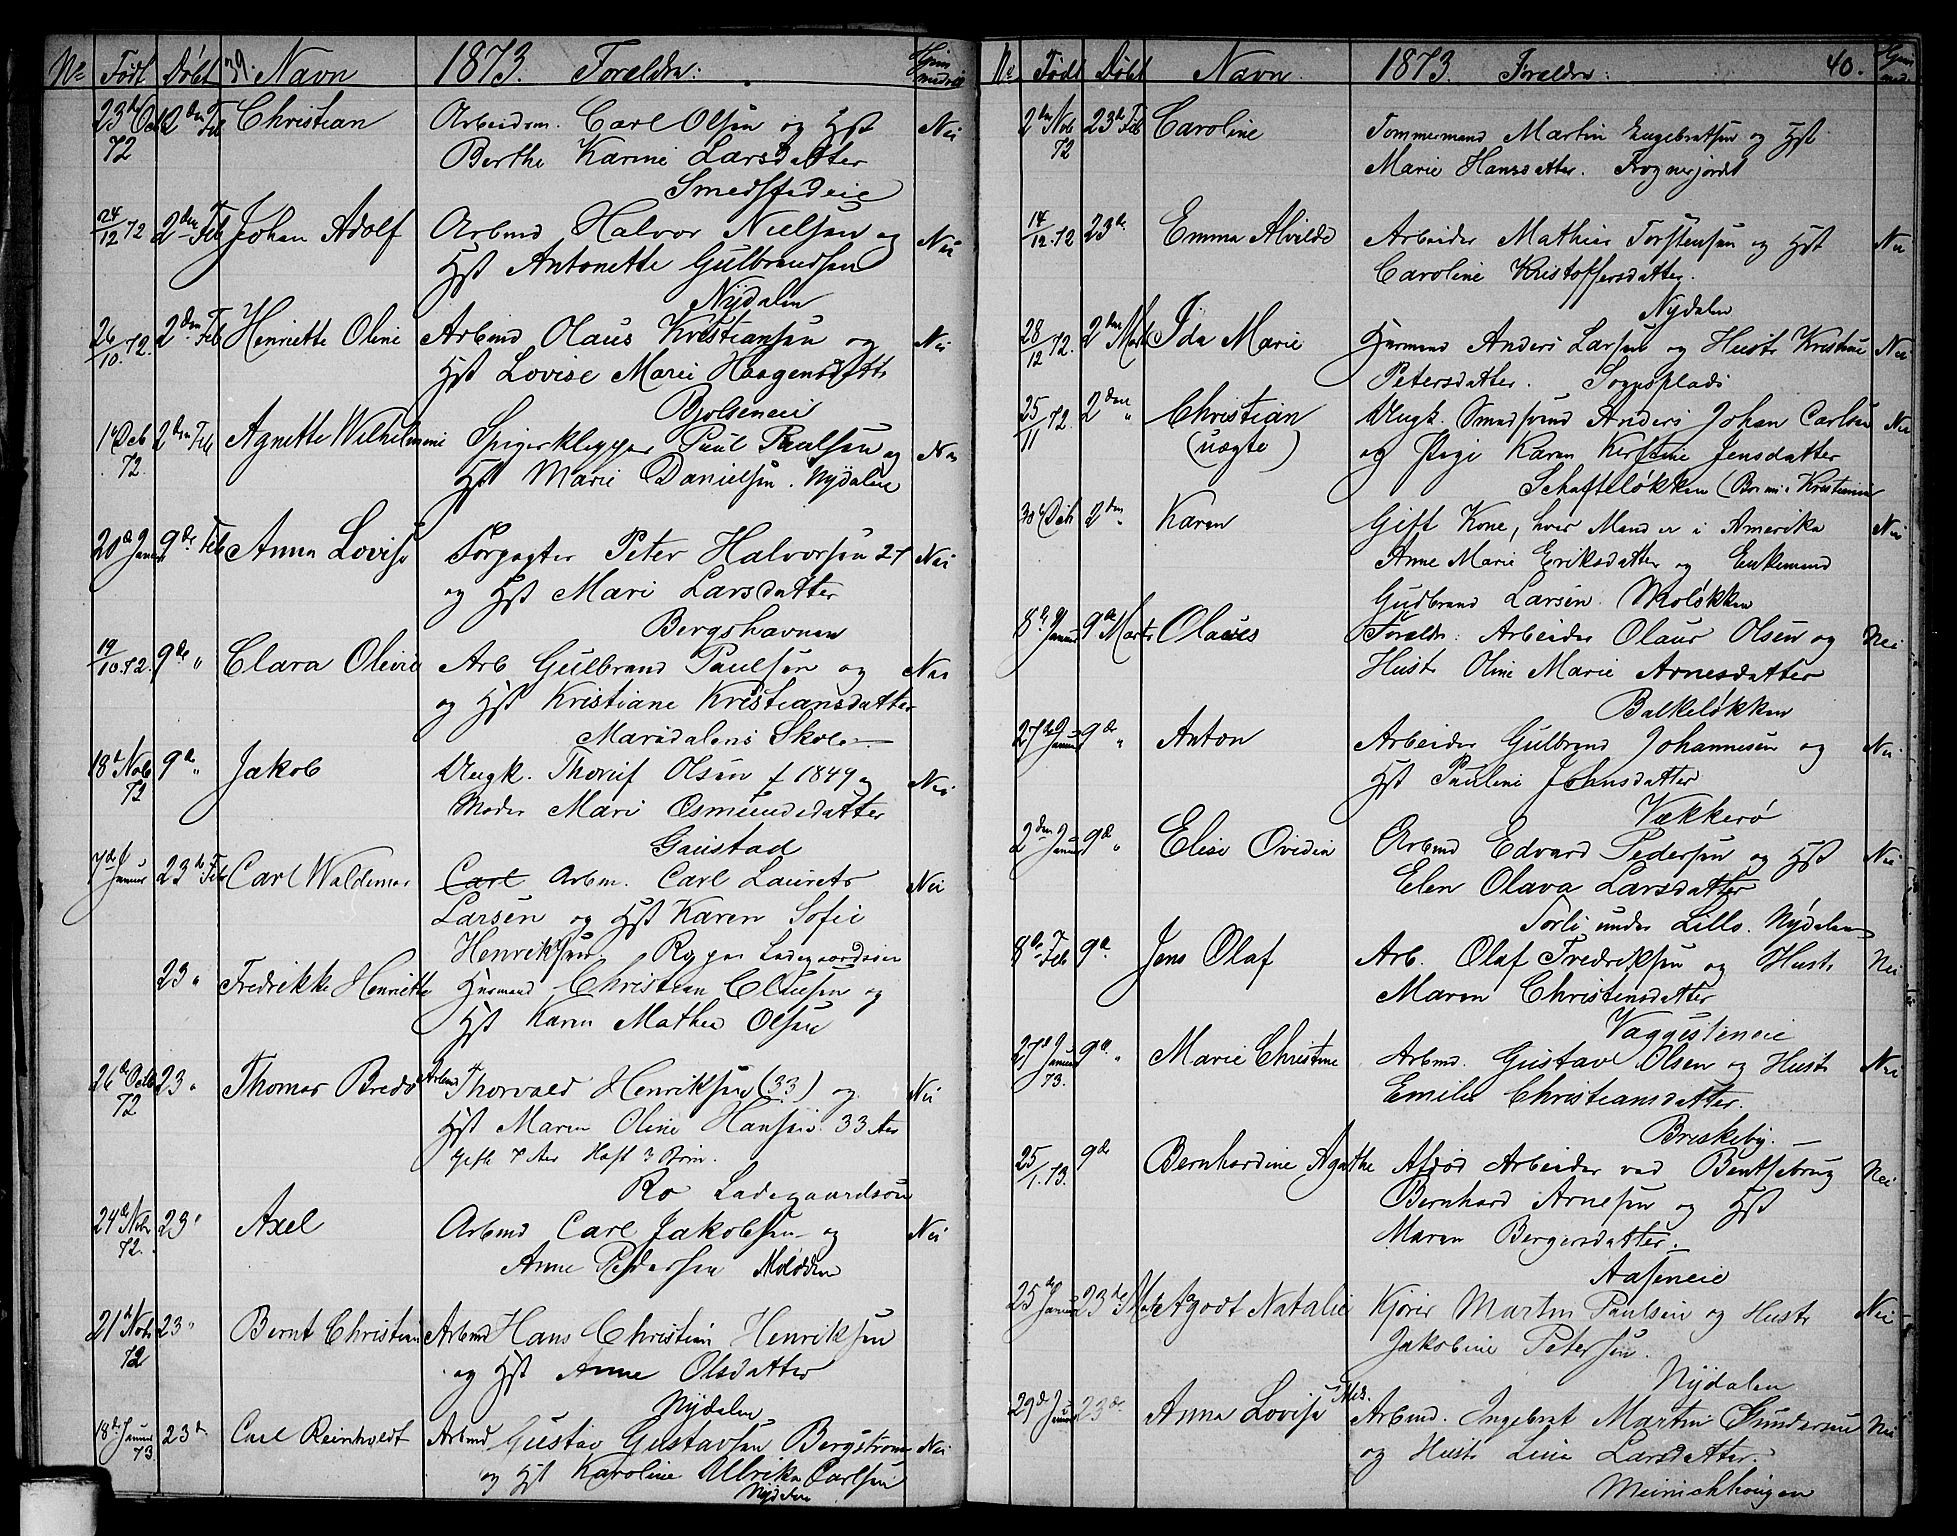 No Født Døbt 39. Navn 1873. Forældre:
23de Oct 72 2den Feb Christian Arbeidsm. Carl Olsen og Hst Nei
Berthe Karine Larsdatter
Smedstadeie
24/12 72 2den Feb Johan Adolf Arbmd Halvor Nielsen og Nei
Hst Antonette Gulbrandsen
Nydalen
26/10.72. 2den Feb Henriette Oline Arbmd Olaus Kristiansen og Nei
Hst Lovise Marie Haagensdatter
Bjølseneie
1 Deb 72. 2den Feb Agnette Wilhelmine Spigerklipper Paul Paulsen og Nei
Hst Marie Danielsen. Nydalen
20de Januar 9de Feb Anna Lovise Forpagter Peter Halvorsen 27 Nei
og Hst Mari Larsdatter
Bergshavnen
19/10.72. 9de " Clara Olivie Arb Gulbrand Paulsen og Nei
og Hst Kristiane Kristiansdatter
Maridalens Skole
18de Nob 72 9de " Jakob Ungk. Thoruf Olsen f 1849 og Nei
Moder Mari Osmundsdatter
Gaustad
7de Januar 23de Feb Carl Waldemar Carl Arbm. Carl Laurets Nei
Larsen og Hst Karen Sofie
Henriksen. Ryper Ladegaardsøen
23 " Fredrikke Henriette Husmand Christian Clausen og
Hst Karen Mathea Olsen
26de Octb 72 23 " Thomas Bredo Arbmd Thorvald Henriksen (33) og Nei
Hst Maren Oline Hansen. 33 Aar
Gift 7 Aar Haft 3 Børn.
Ro Ladegaardsøen
24de Nobr 72. 23 " Axel Arbmd Carl Jakobsen og Nei
Anne Pedersen
21de Nobr 72 23 " Bernt Christian Arbmd Hans Christian Henriksen
og Hst Anne Olsdatter
Nydalen
18de Januar 73 23de Carl Reinholdt Arbmd Gustav Gustavsen Bergstrøm Nei
og Hst Karoline Ulbrika Carlsen
Nydalen
No Født Døbt Navn 1873. Forældre: 40.
2den Nob 72 23de Feb Caroline Tømmermand Martin Engebretsen og Hst
Marie Hansdatter. Rognerjordet
14/12.72 23de Emma Alvilde Arbeider Mathias Torstensen og Hst Nei
Caroline Kristoffersdatter.
Nydalen
28/12 72. 2den Marts Ida Marie Husmand Anders Larsen og Hustr Kristine Nei
Petersdatter. Sognsplads
25/11 72. 2den " Christian Ungk. Smedsvend Anders Johan Carlsen Nei
(uægte) og Pige Karen Kerstine Jensdatter
Schafteløkken (Bor i Kristiania
30 Deb 2den " Karen Gift Kone, hvis Mand er i Amerika Nei
Anne Marie Eriksdatter og Enkemand
Gudbrand Larsen. Moløkken
8de Januar 9de Marts Olaves Foraldr: Arbeider Olaus Olsen og Nei
Hustr Oline Marie Arnesdatter
Balkeløkken
27de Januar 9de " Anton Arbeider Gulbrand Johannesen og Nei
Hst Pauline Johnsdatter
Vækkerø
2den Januar 9de " Elise Ovidia Arbmd Edvard Pedersen og Hst Nei
Elen Olava Larsdatter
Torli under Lille. Nydalen
8de Feb 9de Jens Olaf Arb. Olaf Fredriksen og Hustr Nei
Maren Christensdatter
Vaggesteneie
27de Januar 73. 9de " Marie Christine Arbmd. Gustav Olsen og Hustr Nei
Emilie Christiansdatter.
Briskeby.
25/1.73. 9de Bernhardine Agathe Afdød Arbeider ved Bentsebrug Nei
Bernhard Arnesen og Hst
Maren Bergersdatter.
Aaseneie
25de Januar 23de Mar Agodt Natalie Kjører Martin Paulsen og Hustr Nei
Jakobine Petersen.
Nydalen
29de Januar 23de Anna Lovise Arbmd. Ingebret Martin Gundersen Nei
og Hustr Lina Larsdatter.
Meinichhougen